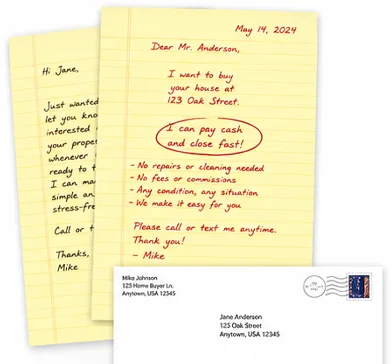 Hi Jane,
Just wanted
let you kno
interested
your prope
whenever
ready to t
I can ma
simple an
stress-fre
Call or t
Thanks,
Mike
May 14, 2024
Dear Mr. Anderson,
I want to buy
your house at
123 Oak Street.
I can pay cash
and close fast!
- No repairs or cleaning needed
- No fees or commissions
- Any condition, any situation
- We make it easy for you
Please call or text me anytime.
Thank you!
- Mike
Mike Johnson
123 Home Buyer Ln.
Anytown, USA 12345
Jane Anderson
123 Oak Street
Anytown, USA 12345